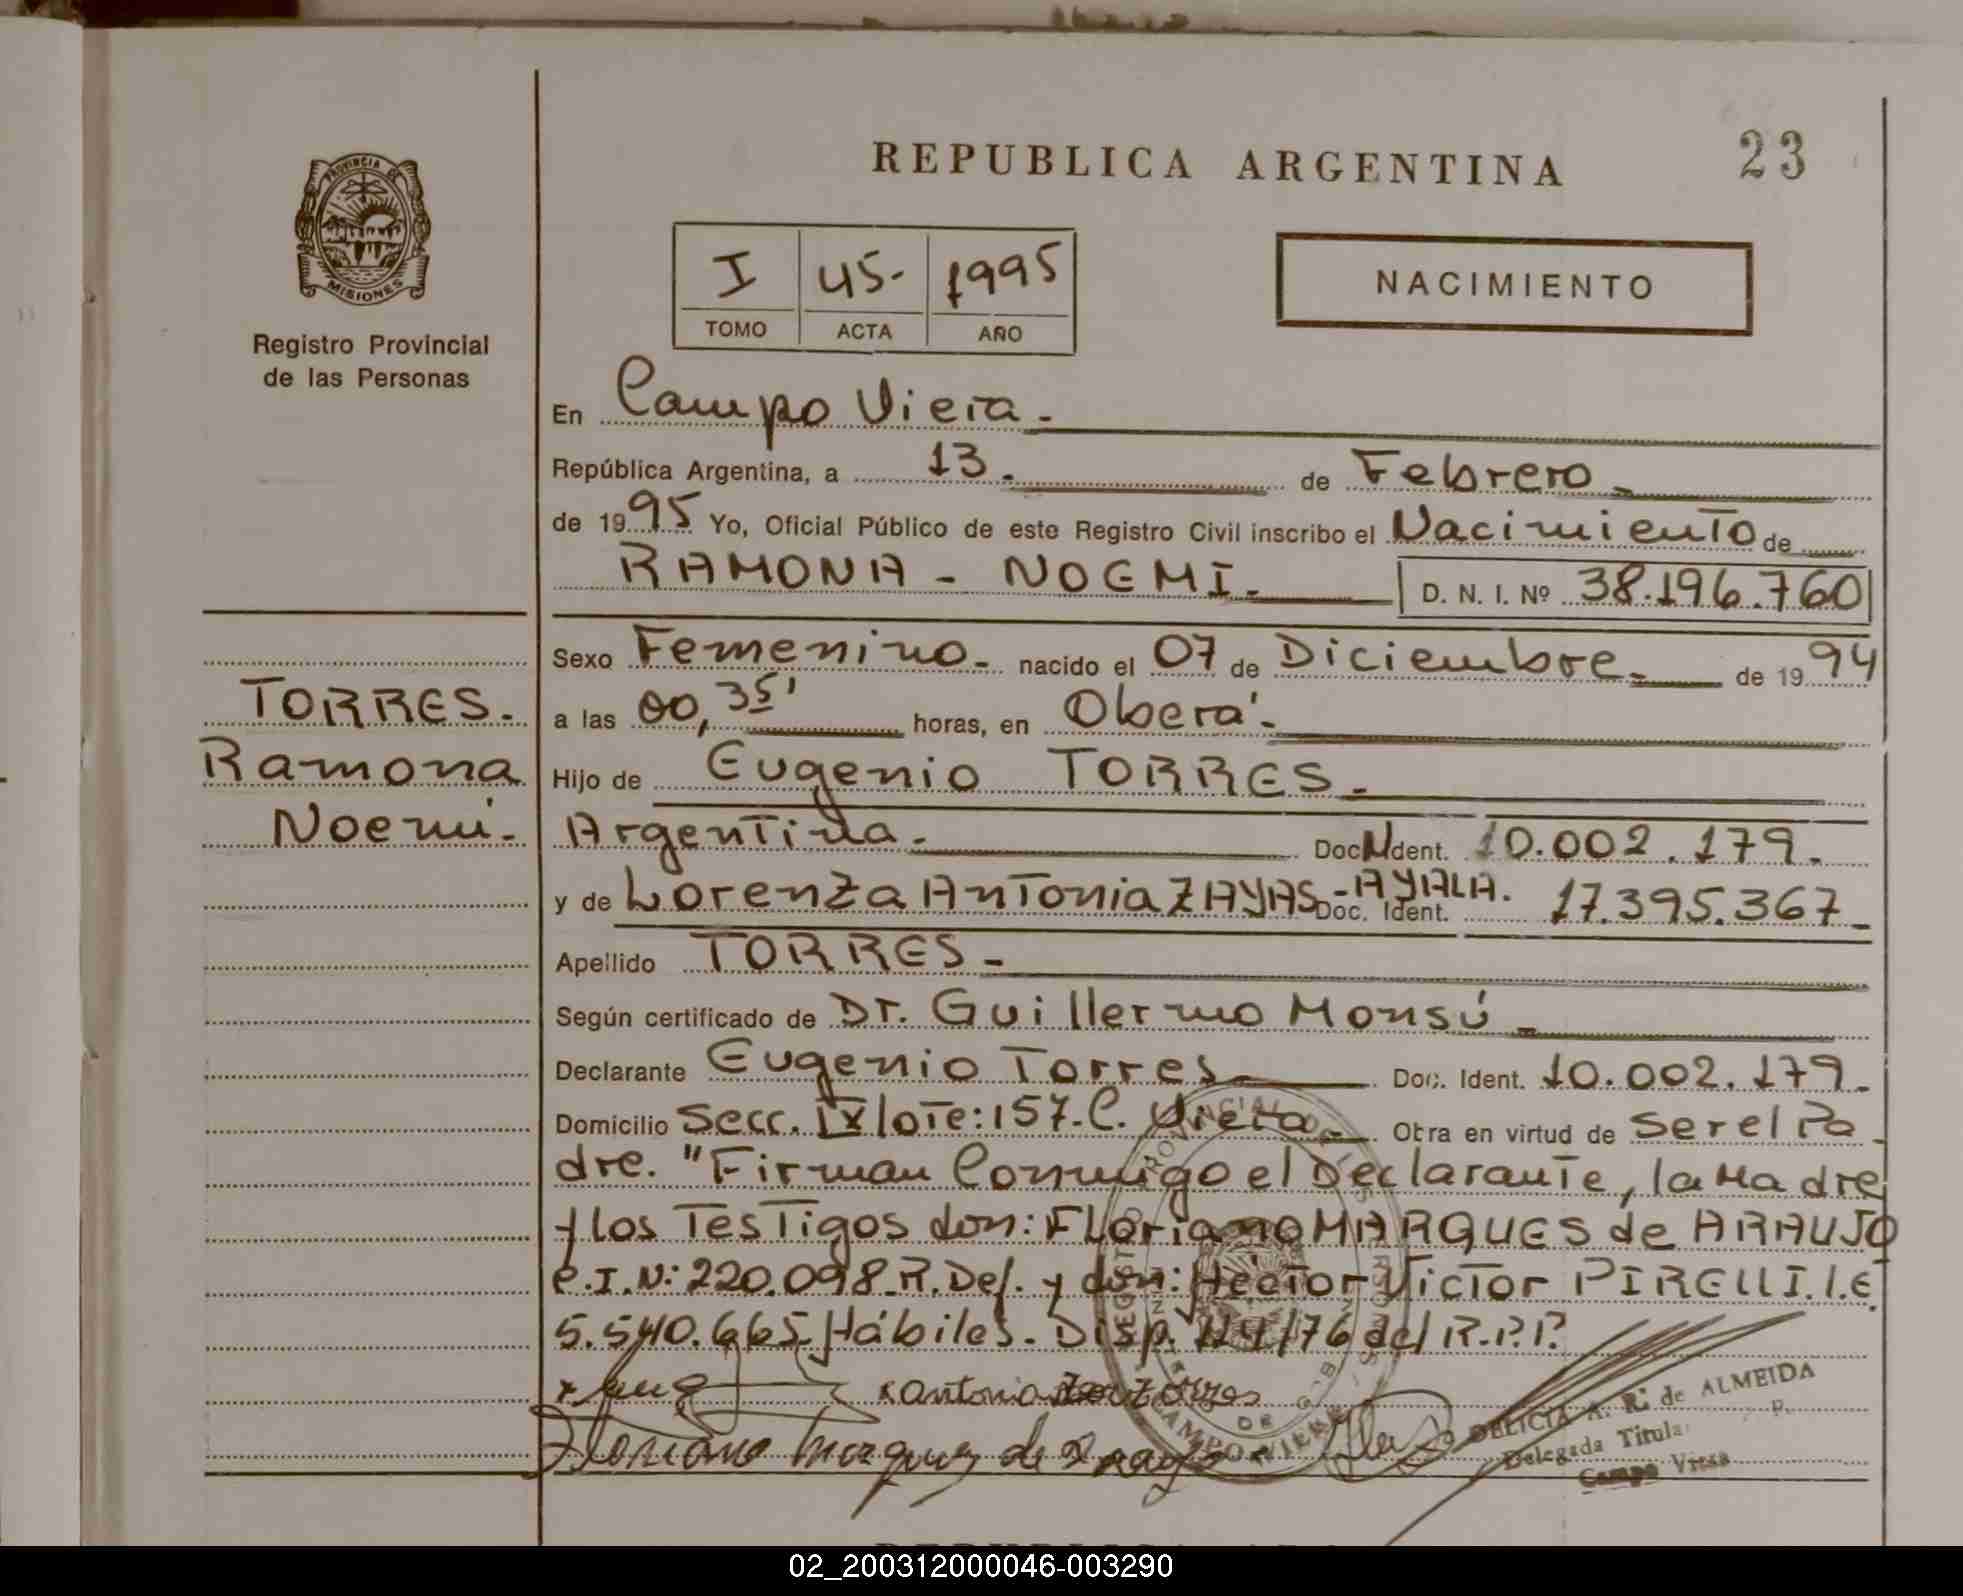 REPUBLICA ARGENTINA
23
PROVINCIA DE
MISIONES
Registro Provincial
de las Personas
I 45- 1995
TOMO ACTA AÑO
NACIMIENTO
En Campo Viera-
República Argentina, a 13. de Febrero-
de 1995 Yo, Oficial Público de este Registro Civil inscribo el Nacimiento de
RAMONA - NOEMI- D. N. I. Nº 38.196.760
Sexo Femenino- nacido el 07 de Diciembre- de 1994
a las 00,35' horas, en Oberá-
Hijo de Eugenio TORRES-
Argentina- Doc. Ident. 10.002.179.
y de Lorenza Antonia ZAYAS-AYALA. Doc. Ident. 17.395.367-
Apellido TORRES-
Según certificado de Dr. Guillermo Monsú-
Declarante Eugenio Torres- Doc. Ident. 10.002.179-
Domicilio Secc. IX lote:157-C. Viera- Obra en virtud de ser el Pa-
dre. "Firman Conmigo el Declarante, la Madre
y los Testigos don: Floriano MARQUES de ARAUJO
C.I.N: 220.098.R.Def. y don: Héctor Victor PIRELLI.L.E.
5.540.665. Hábiles- Disp. 114/76 del R.P.P.
x antonia Torres
Floriano Marques de Araujo
DELICIA A. R. de ALMEIDA
Delegada Titular
Campo Viera
TORRES-
Ramona
Noemi-
02_200312000046-003290